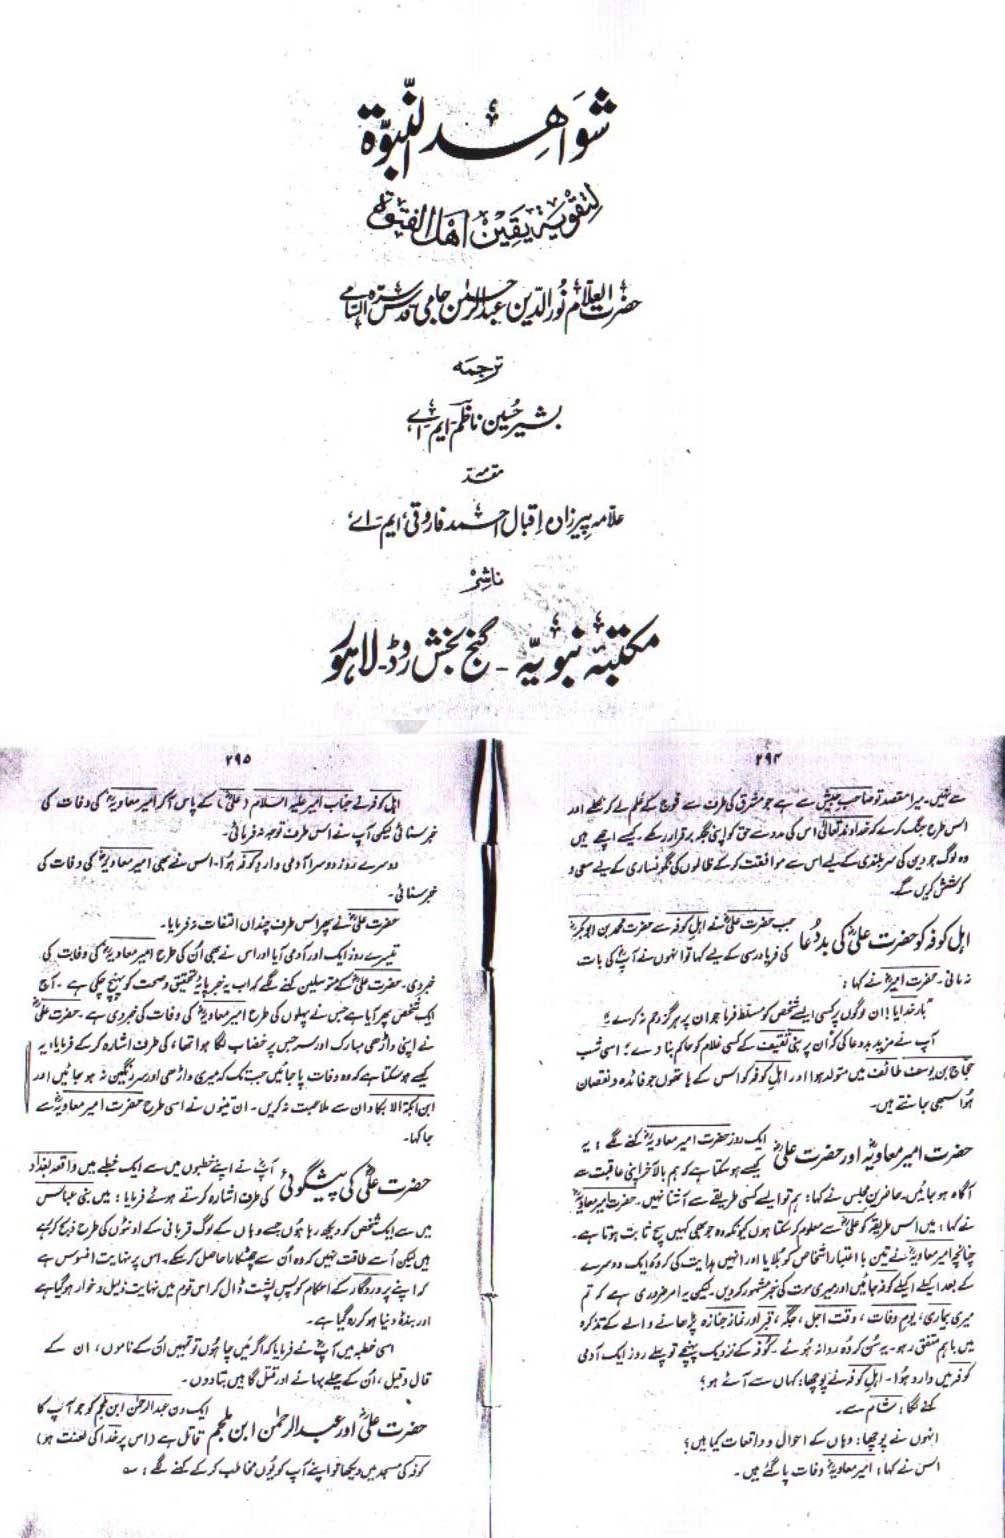 شَوَاهِدُ النُّبُوَّة
لِتَقْوِيَةِ يَقِيْنِ اَهْلِ الْفُتُوَّة
حضرت العلّام نُورُ الدّین عبدالرحمٰن جامی قدس سرّہ السّامی
ترجمہ
بشیر حُسین ناظم۔ ایم۔ اے
مقدمہ
علامہ پیرزادہ اِقبال احمد فاروقی، ایم۔ اے
ناشر
مکتبۂ نبویّہ ۔ گنج بخش روڈ۔ لاہور
۲۹۴
سے نہیں۔ میرا مقصد تو صاحب جیش سے ہے جو مشرق کی طرف سے فوج کے علم لے کر نکلے اور
اس طرح جنگ کرے کہ خداوند تعالیٰ اس کی مدد سے حق کو اپنی جگہ برقرار رکھے۔ کیسے اچھے ہیں
وہ لوگ جو دین کی سربلندی کے لیے اس سے موافقت کر کے ظالموں کی نگونساری کے لیے سعی و
کوشش کریں گے۔
اہل کوفہ کو حضرت علیؓ کی بددُعا
جب حضرت علیؓ نے اہل کوفہ سے حضرت محمد بن ابوبکرؓ
کی فریاد رسی کے لیے کہا تو انہوں نے آپؓ کی بات
نہ مانی۔ حضرت امیرؓ نے کہا:
"بارخدایا! ان لوگوں پر کسی ایسے شخص کو مسلط فرما جو ان پر ہرگز رحم نہ کرے۔"
آپ نے مزید بددعا کی کہ ان پر بنی ثقیف کے کسی غلام کو حاکم بنا دے؛ اسی شب
حجاج بن یوسف طائف میں متولد ہوا اور اہل کوفہ کو اس کے ہاتھوں جو فائدہ و نقصان
ہوا سبھی جانتے ہیں۔
حضرت امیر معاویہؓ اور حضرت علیؓ
ایک روز حضرت امیر معاویہؓ کہنے لگے: یہ
کیسے ہو سکتا ہے کہ ہم بالآخر اپنی عاقبت سے
آگاہ ہو جائیں۔ حاضرین مجلس نے کہا: ہم تو ایسے کسی طریقے سے آشنا نہیں۔ حضرت امیر معاویہؓ
نے کہا: میں اس طریقہ کو علیؓ سے معلوم کر سکتا ہوں کیونکہ وہ جو بھی کہیں سچ ثابت ہوتا ہے۔
چنانچہ امیر معاویہؓ نے تین با اعتبار اشخاص کو بلایا اور انہیں ہدایت کی کہ وہ ایک دوسرے
کے بعد اکیلے اکیلے کوفہ جائیں اور میری موت کی خبر مشہور کر دیں۔ لیکن یہ امر ضروری ہے کہ تم
میری بیماری، یومِ وفات، وقت اجل، جگہ، قبر اور نماز جنازہ پڑھانے والے کے تذکرہ
میں باہم متفق رہو۔ یہ سُن کر وہ روانہ ہوئے۔ کوفہ کے نزدیک پہنچے تو پہلے روز ایک آدمی
کوفہ میں وارد ہُوا۔ اہلِ کوفہ نے پوچھا: کہاں سے آئے ہو؟
کہنے لگا: شام سے۔
انہوں نے پوچھا: وہاں کے احوال و واقعات کیا ہیں؟
اس نے کہا: امیر معاویہؓ وفات پا گئے ہیں۔
۲۹۵
اہل کوفہ نے جناب امیر علیہ السلام (علیؓ) کے پاس آکر امیر معاویہؓ کی وفات کی
خبر سنائی لیکن آپ نے اس طرف توجہ نہ فرمائی۔
دوسرے روز دوسرا آدمی وارد کوفہ ہُوا۔ اس نے بھی امیر معاویہؓ کی وفات کی
خبر سنائی۔
حضرت علیؓ نے پھر اس طرف چنداں التفات نہ فرمایا۔
تیسرے روز ایک اور آدمی آیا اور اس نے بھی اُن کی طرح امیر معاویہؓ کی وفات کی
خبر دی۔ حضرت علیؓ کے متوسلین کہنے لگے کہ اب یہ خبر پایۂ تحقیق و صحت کو پہنچ چکی ہے۔ آج
ایک شخص پھر آیا ہے جس نے پہلوں کی طرح امیر معاویہؓ کی وفات کی خبر دی ہے۔ حضرت علیؓ
نے اپنی داڑھی مبارک اور سر جس پر خضاب لگا ہوا تھا، کی طرف اشارہ کر کے فرمایا: یہ
کیسے ہو سکتا ہے کہ وہ وفات پا جائیں جب تک کہ میری داڑھی اور سر رنگین نہ ہو جائیں اور
ابن آکلۃ الاکباد ان سے ملاعبت نہ کریں۔ ان تینوں نے اسی طرح حضرت امیر معاویہؓ سے
جا کہا۔
حضرت علیؓ کی پیشگوئی
آپؓ نے اپنے خطبوں میں سے ایک خطبے میں واقعہ بغداد
کی طرف اشارہ کرتے ہوئے فرمایا: میں بنی عباس
میں سے ایک شخص کو دیکھ رہا ہوں جسے وہاں کے لوگ قربانی کے اونٹوں کی طرح ذبح کر رہے
ہیں لیکن اُسے طاقت نہیں کہ وہ اُن سے چھٹکارا حاصل کر سکے۔ اس پر نہایت افسوس ہے
کہ اپنے پروردگار کے احکام کو پس پشت ڈال کر اس قوم میں نہایت ذلیل و خوار ہو گیا ہے
اور بندۂ دنیا ہو کر رہ گیا ہے۔
اسی خطبہ میں آپؓ نے فرمایا کہ اگر میں چاہوں تو تمہیں اُن کے ناموں، ان کے
قال وقیل، اُن کے حیلے بہانے اور قتل گاہیں بتا دوں۔
حضرت علیؓ اور عبدالرحمٰن ابن ملجم
ایک دن عبدالرحمٰن ابن ملجم کو جو آپ کا
قاتل ہے (اس پر خُدا کی لعنت ہو)
کوفہ کی مسجد میں دیکھا تو اپنے آپ کو یوں مخاطب کر کے کہنے لگے: